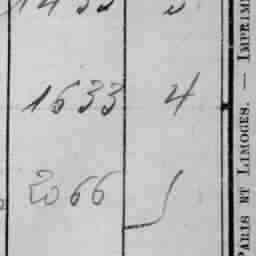 1633 4
2066
PARIS ET LIMOGES. — IMPRIM